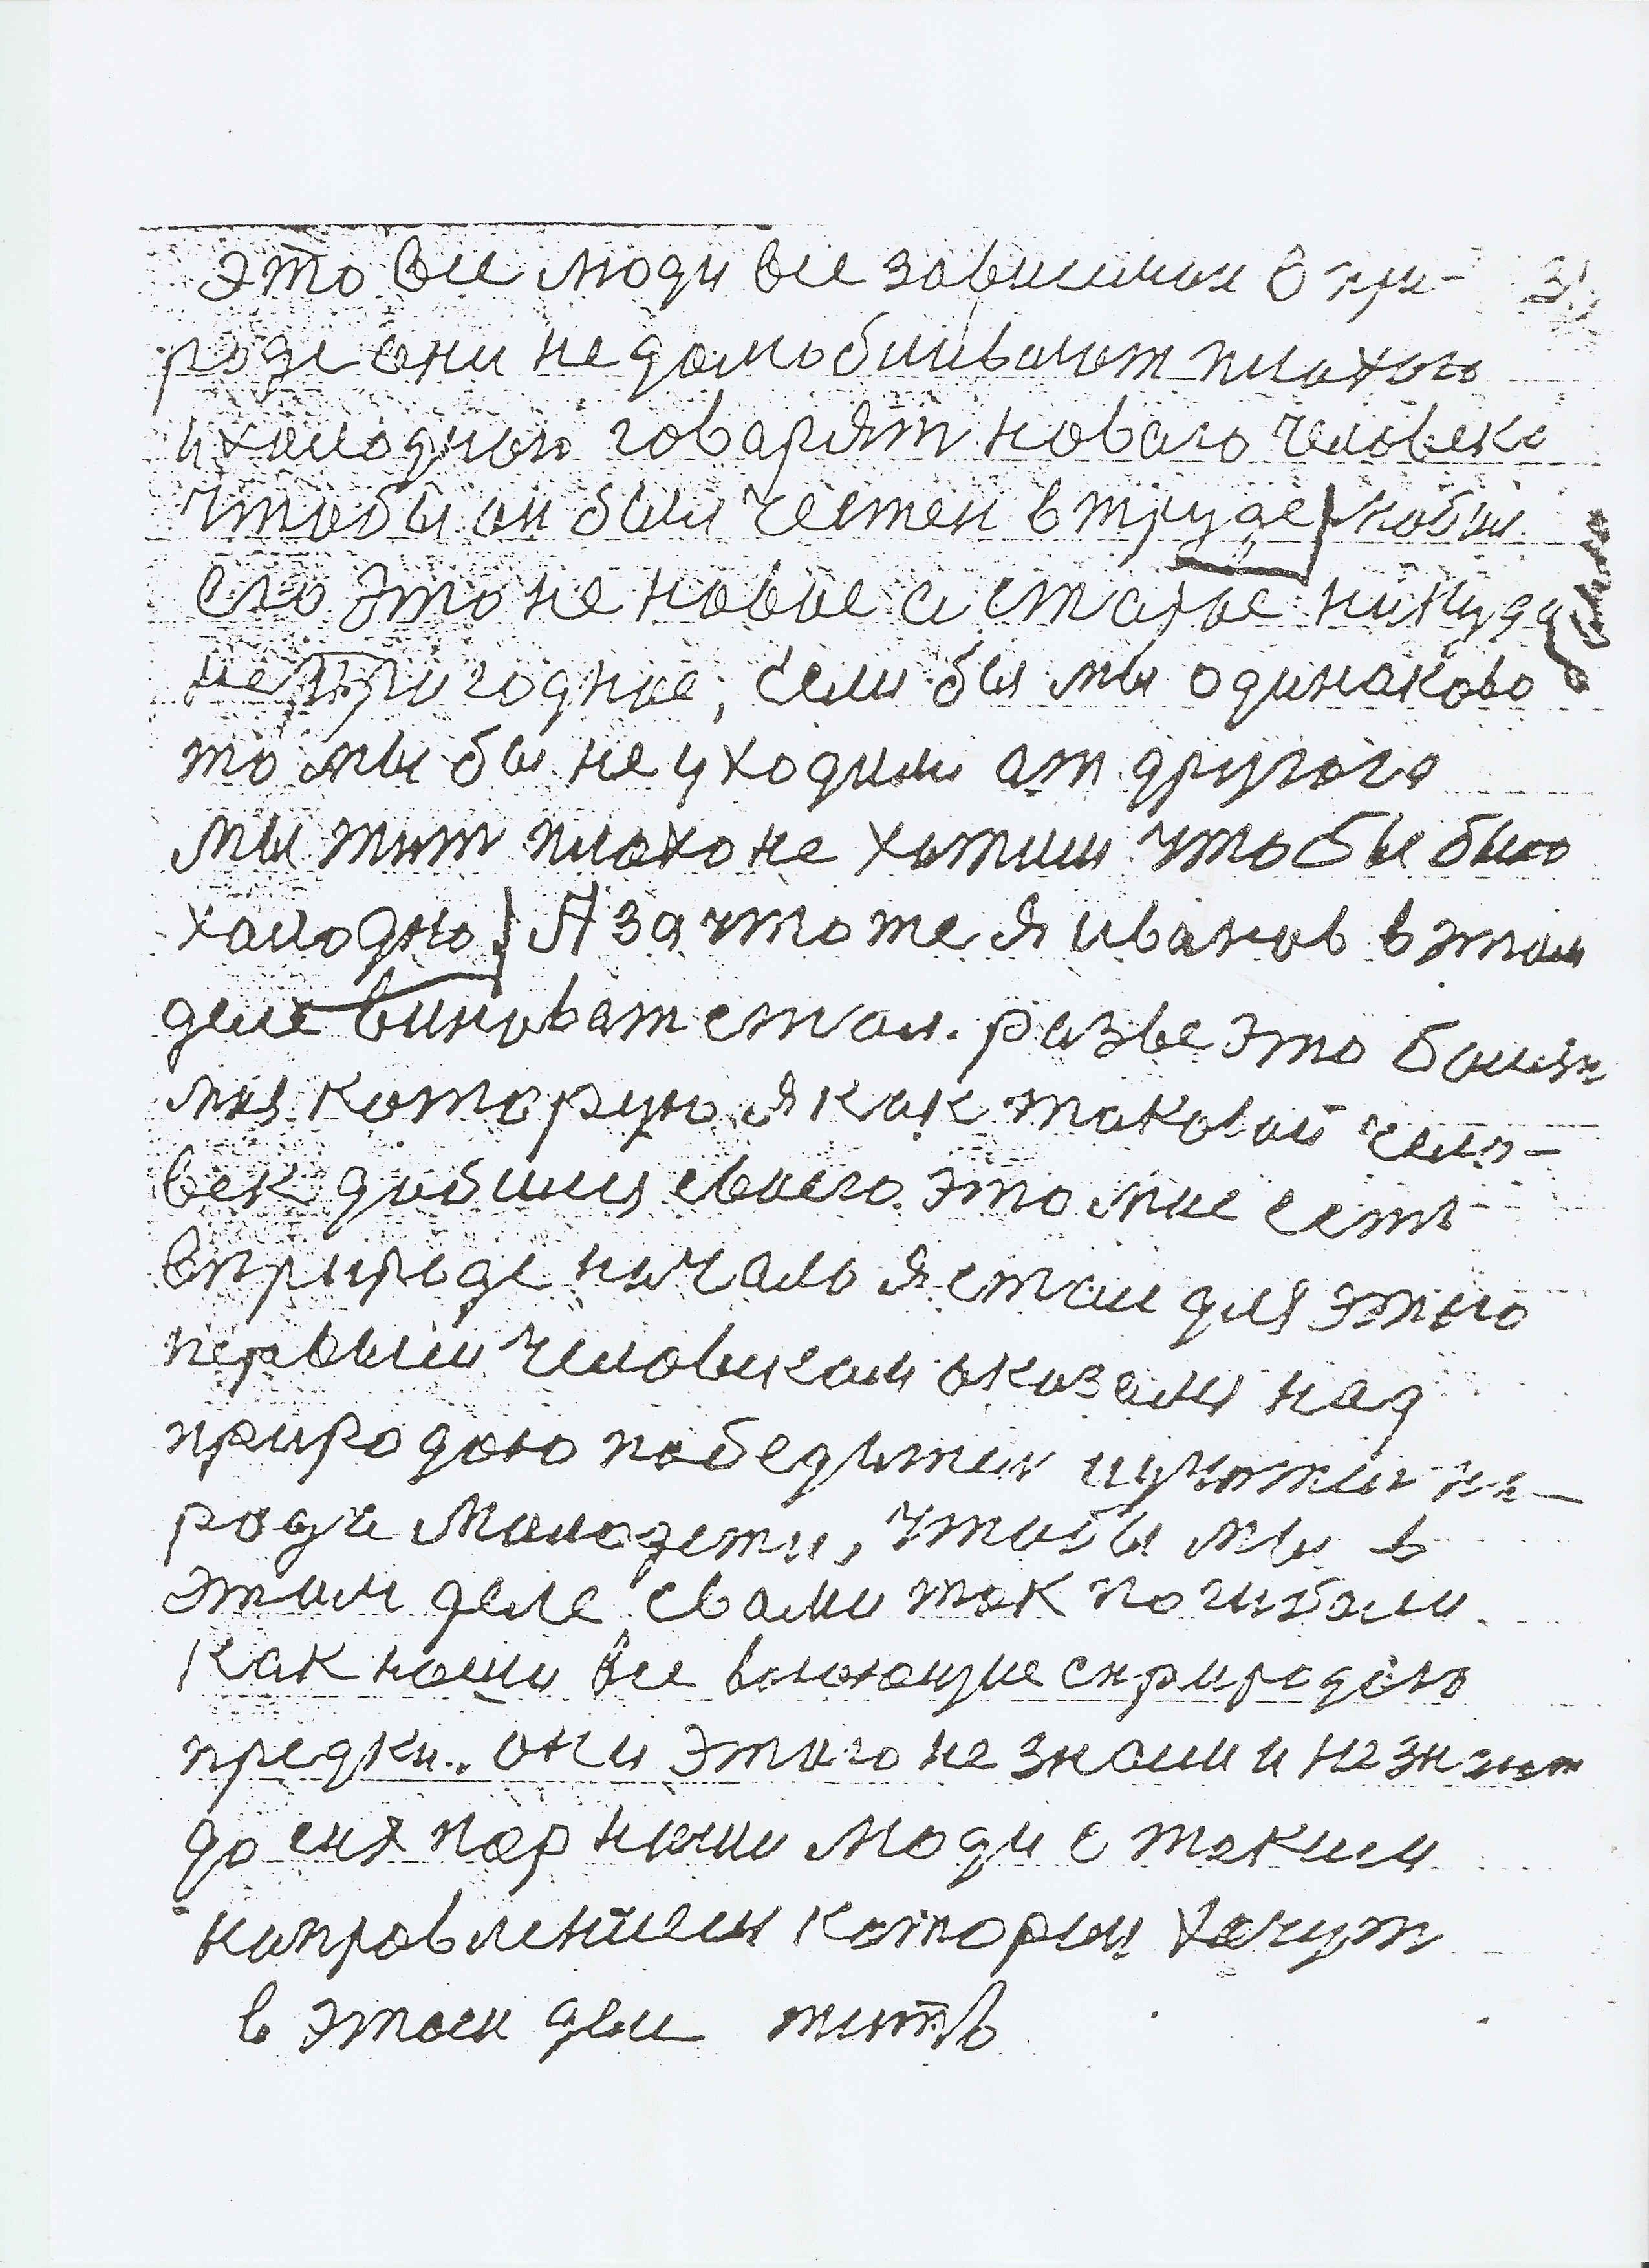 это все люди все зависимои в при- 3
роде они не домобливают плахого
и халоднои говарят новаго человека
чтобы он был честен в труде
его это не новое а старое никуда
не пригодное, если бы мы одинаково
то мы бы не уходили ат другого
мы жит плохо не хотим чтобы было
халодно А за что же я иванов в этом
деле виноват стал. разве это
мая которую я как таковой чело-
век добился своего. это мне есть
в природе начало я стал для этого
первым человеком оказался над
природаю победител и учител на-
роде молодежи, чтобы мы в
этим деле с вами так погибали
Как наши все воюющие с природою
предки.. они этого не знали и не знают
до сих пор наши люди с таким
направлением которыи хочут
в этом деле жить